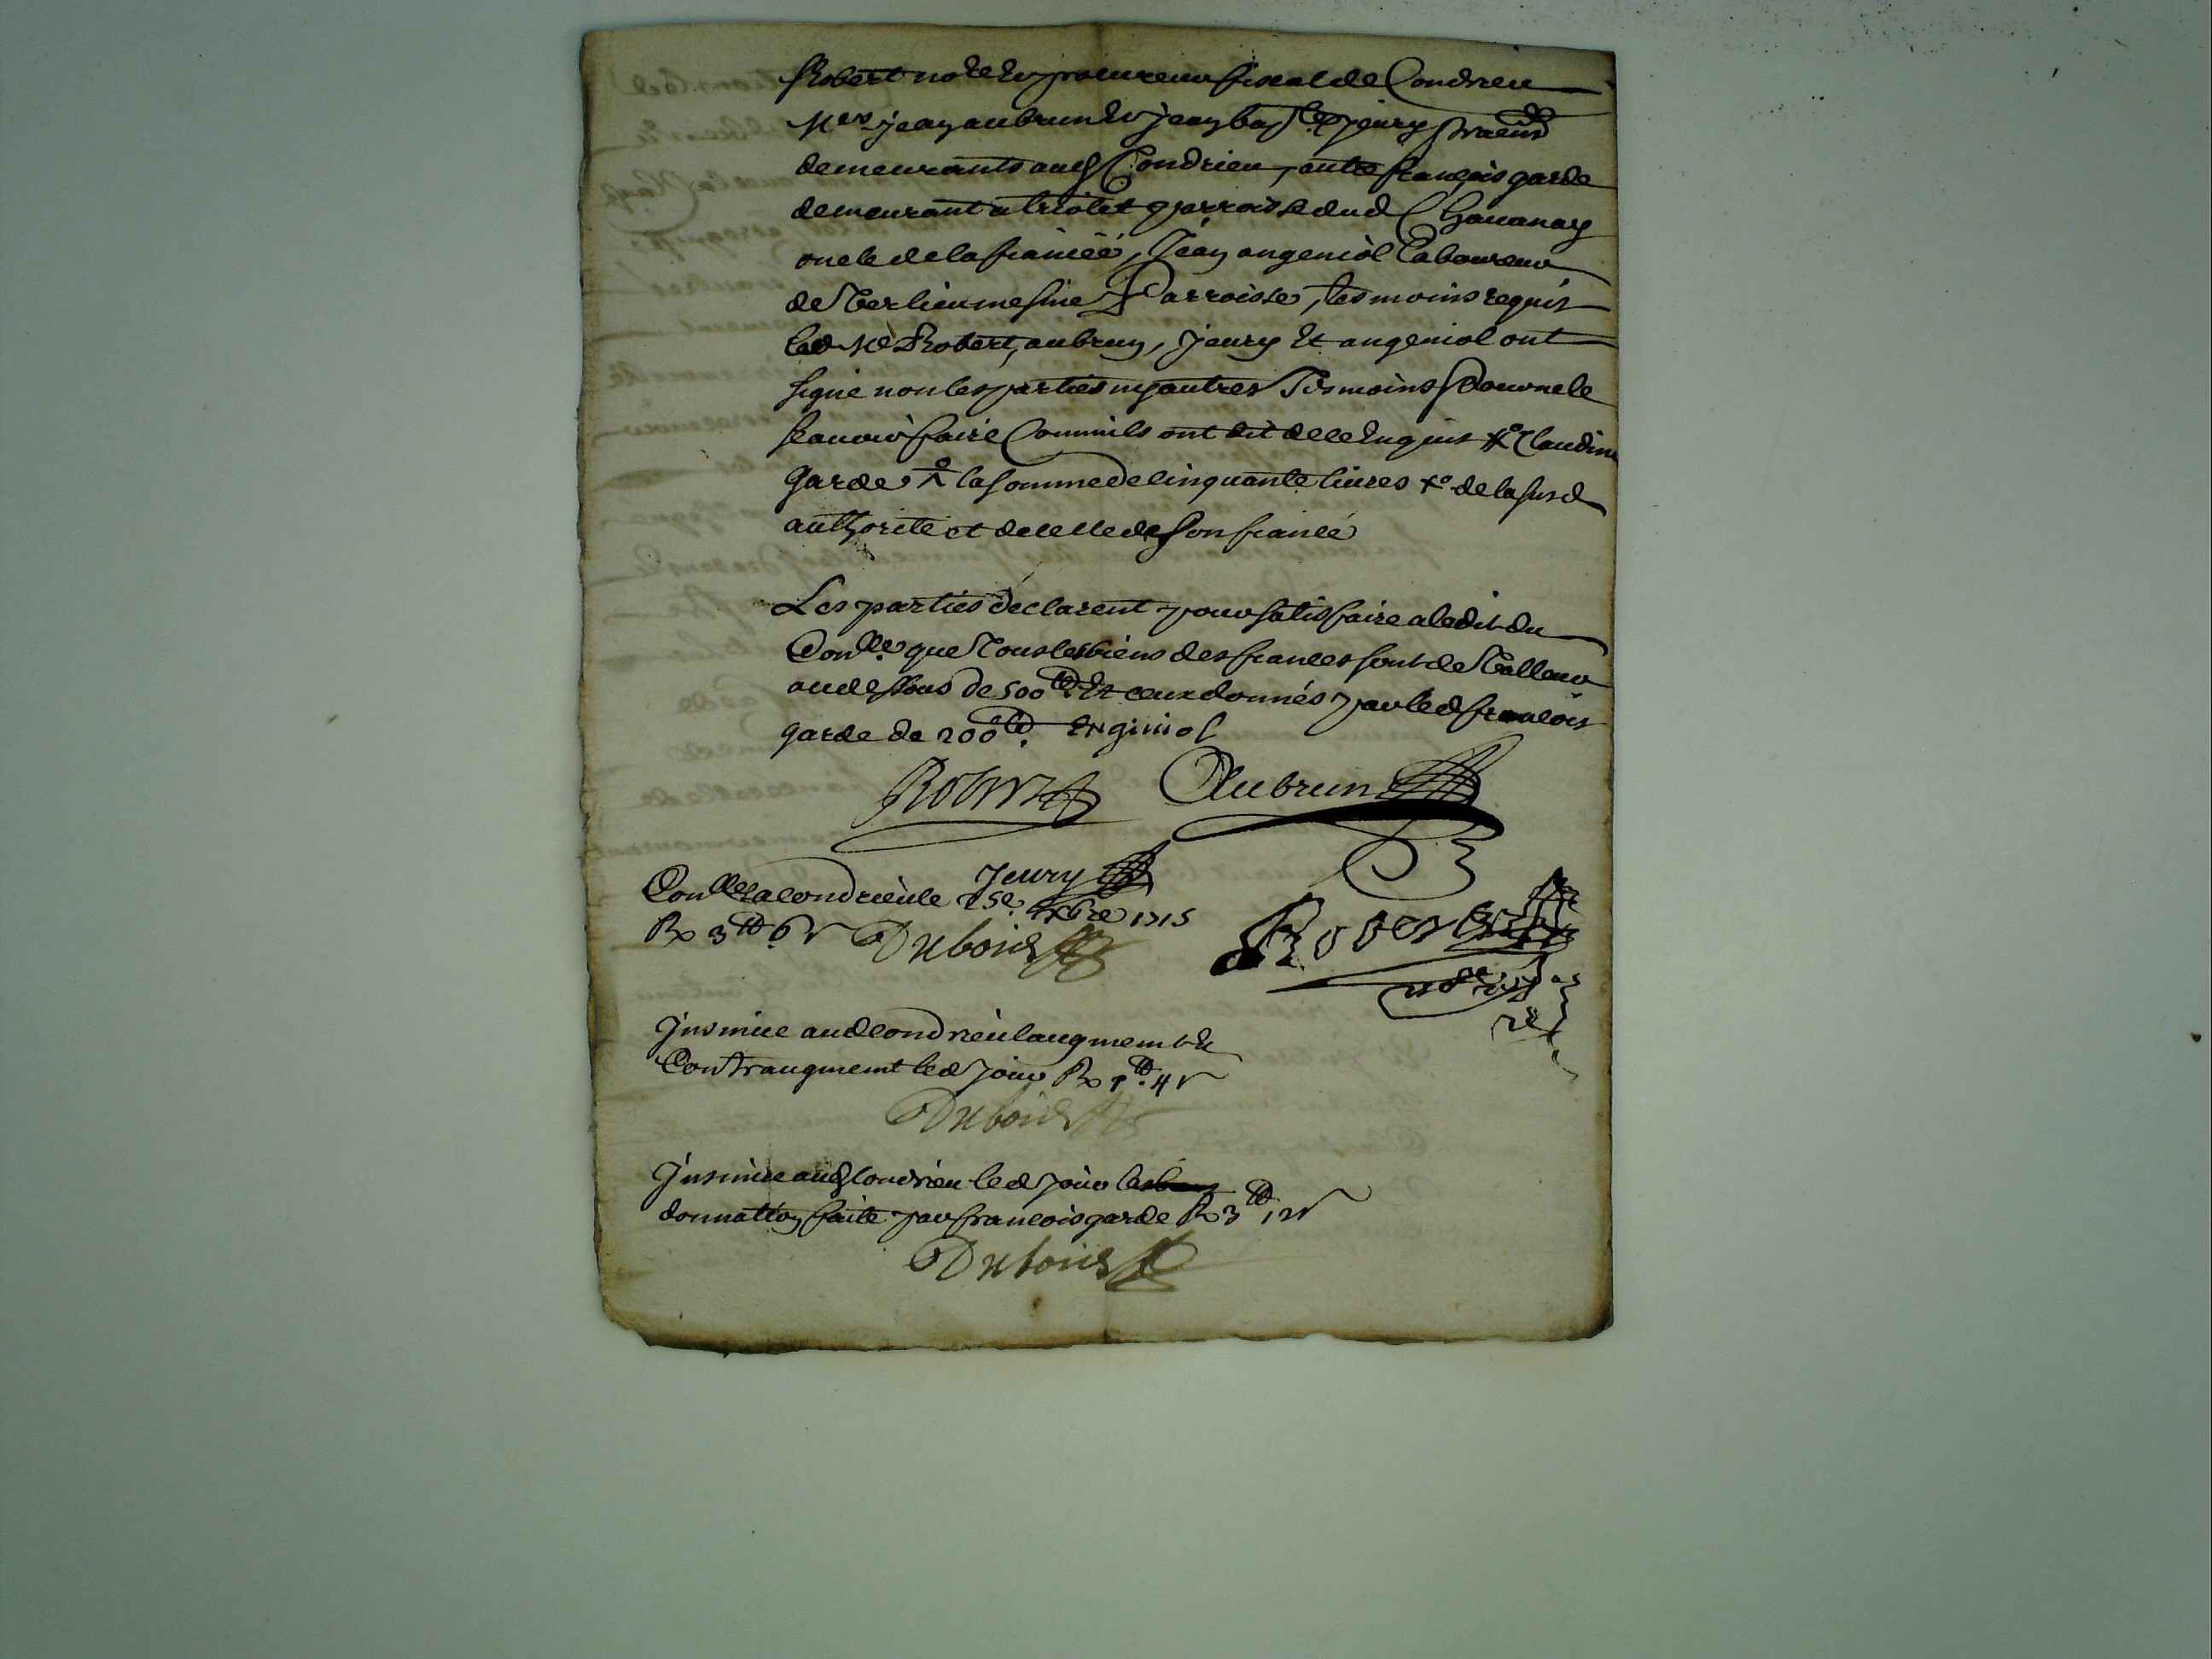 Robert no.re et procureur fiscal de Condrieu
M.es jean aubrun et jean bap.te jeury
demeurants aud Condrieu, autre françois garde
demeurant a triolet parroisse dud Chauanay
oncle de la fiancéé, Jean angeniol Laboureur
de Verlieu mesme Parroisse, tesmoins requis
led M.e Robert, aubrun, jeury Et angeniol ont
signé non les parties ny autres Tesmoins pour ne le
scauoir faire Comm'ils ont dit de ce Enquis x.o Claudine
garde x.o la somme de cinquante liures x.o de la susd
authorité et de celle de son fiancé
Les parties declarent pour satisfaire a ledit du
Con.lle que Tous les biens des fiances sont de Valleur
au dessous de 500.tt Et ceux donnés par led francois
garde de 200.tt Enginiol
Robert Aubrun
Jeury
Con.llé a condrieu le 25e xbre 1715
Rx 3.tt 6 s Dubois
Robert
Insinue aud condrieu laugment Et
Contraugment led jour Rx 1.tt 4 s
Dubois
Insinue aud condrieu led jour
donnation faite par francois garde Rx 3.tt 12 s
Dubois